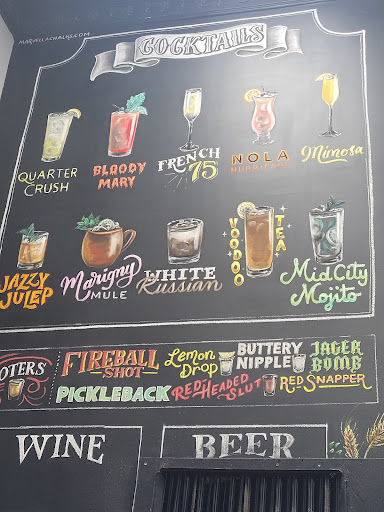 MARVELLACHALKS.COM
COCKTAILS
QUARTER
CRUSH
BLOODY
MARY
FRENCH
75
NOLA
HURRICANE
Mimosa
JAZZY
JULEP
Marigny
MULE
WHITE
Russian
VOODOO
TEA
MidCity
Mojito
OTERS
FIREBALL
SHOT
Lemon
Drop
BUTTERY
NIPPLE
JAGER
BOMB
PICKLEBACK
RED-HEADED
SLUT
RED SNAPPER
WINE
BEER